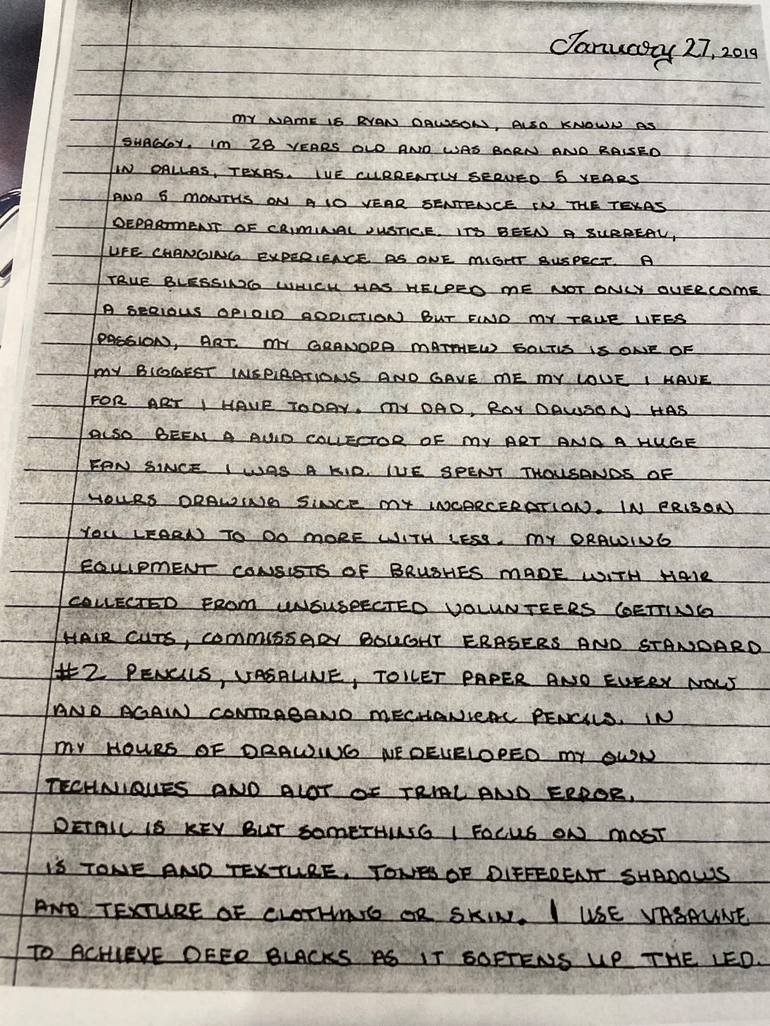 January 27, 2019
MY NAME IS RYAN DAWSON, ALSO KNOWN AS
SHAGGY. IM 28 YEARS OLD AND WAS BORN AND RAISED
IN DALLAS, TEXAS. IVE CURRENTLY SERVED 5 YEARS
AND 5 MONTHS ON A 10 YEAR SENTENCE IN THE TEXAS
DEPARTMENT OF CRIMINAL JUSTICE. ITS BEEN A SURREAL,
LIFE CHANGING EXPERIENCE AS ONE MIGHT SUSPECT. A
TRUE BLESSING WHICH HAS HELPED ME NOT ONLY OVERCOME
A SERIOUS OPIOID ADDICTION BUT FIND MY TRUE LIFES
PASSION, ART. MY GRANDPA MATTHEW SOLTIS IS ONE OF
MY BIGGEST INSPIRATIONS AND GAVE ME MY LOVE I HAVE
FOR ART I HAVE TODAY. MY DAD, ROY DAWSON HAS
ALSO BEEN A AVID COLLECTOR OF MY ART AND A HUGE
FAN SINCE I WAS A KID. IVE SPENT THOUSANDS OF
HOURS DRAWING SINCE MY INCARCERATION. IN PRISON
YOU LEARN TO DO MORE WITH LESS. MY DRAWING
EQUIPMENT CONSISTS OF BRUSHES MADE WITH HAIR
COLLECTED FROM UNSUSPECTED VOLUNTEERS GETTING
HAIR CUTS, COMMISSARY BOUGHT ERASERS AND STANDARD
#2 PENCILS, VASALINE, TOILET PAPER AND EVERY NOW
AND AGAIN CONTRABAND MECHANICAL PENCILS. IN
MY HOURS OF DRAWING IVE DEVELOPED MY OWN
TECHNIQUES AND ALOT OF TRIAL AND ERROR.
DETAIL IS KEY BUT SOMETHING I FOCUS ON MOST
IS TONE AND TEXTURE. TONES OF DIFFERENT SHADOWS
AND TEXTURE OF CLOTHING OR SKIN. I USE VASALINE
TO ACHIEVE DEEP BLACKS AS IT SOFTENS UP THE LED.